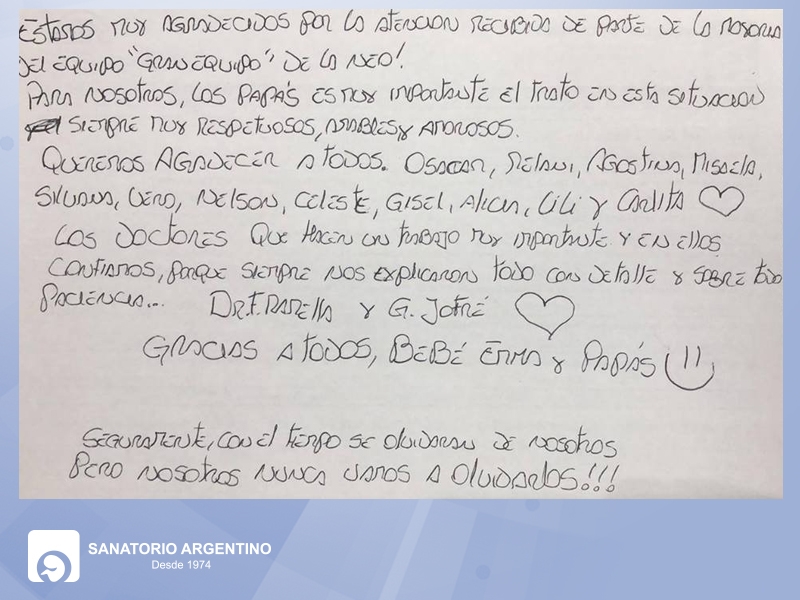 ESTAMOS MUY AGRADECIDOS POR LA ATENCION RECIBIDA DE PARTE DE LA MAYORIA
DEL EQUIPO "GRAN EQUIPO" DE LA NEO!
PARA NOSOTROS, LOS PAPÁS ES MUY IMPORTANTE EL TRATO EN ESTA SITUACION
SIEMPRE MUY RESPETUOSOS, AMABLES Y AMOROSOS.
QUEREMOS AGRADECER A TODOS. OSACAR, MELANI, AGOSTINA, MISAELA,
SILVANA, VERO, NELSON, CELESTE, GISEL, ALICIA, LILI Y CARLITA
LOS DOCTORES QUE HACEN UN TRABAJO MUY IMPORTANTE Y EN ELLOS
CONFIAMOS, PORQUE SIEMPRE NOS EXPLICARON TODO CON DETALLE Y SOBRE TODO
PACIENCIA... DR. F. PARELLA Y G. JOFRÉ
GRACIAS A TODOS, BEBÉ EMMA Y PAPÁS
SEGURAMENTE, CON EL TIEMPO SE OLVIDARAN DE NOSOTROS
PERO NOSOTROS NUNCA VAMOS A OLVIDARLOS!!!
SANATORIO ARGENTINO
Desde 1974